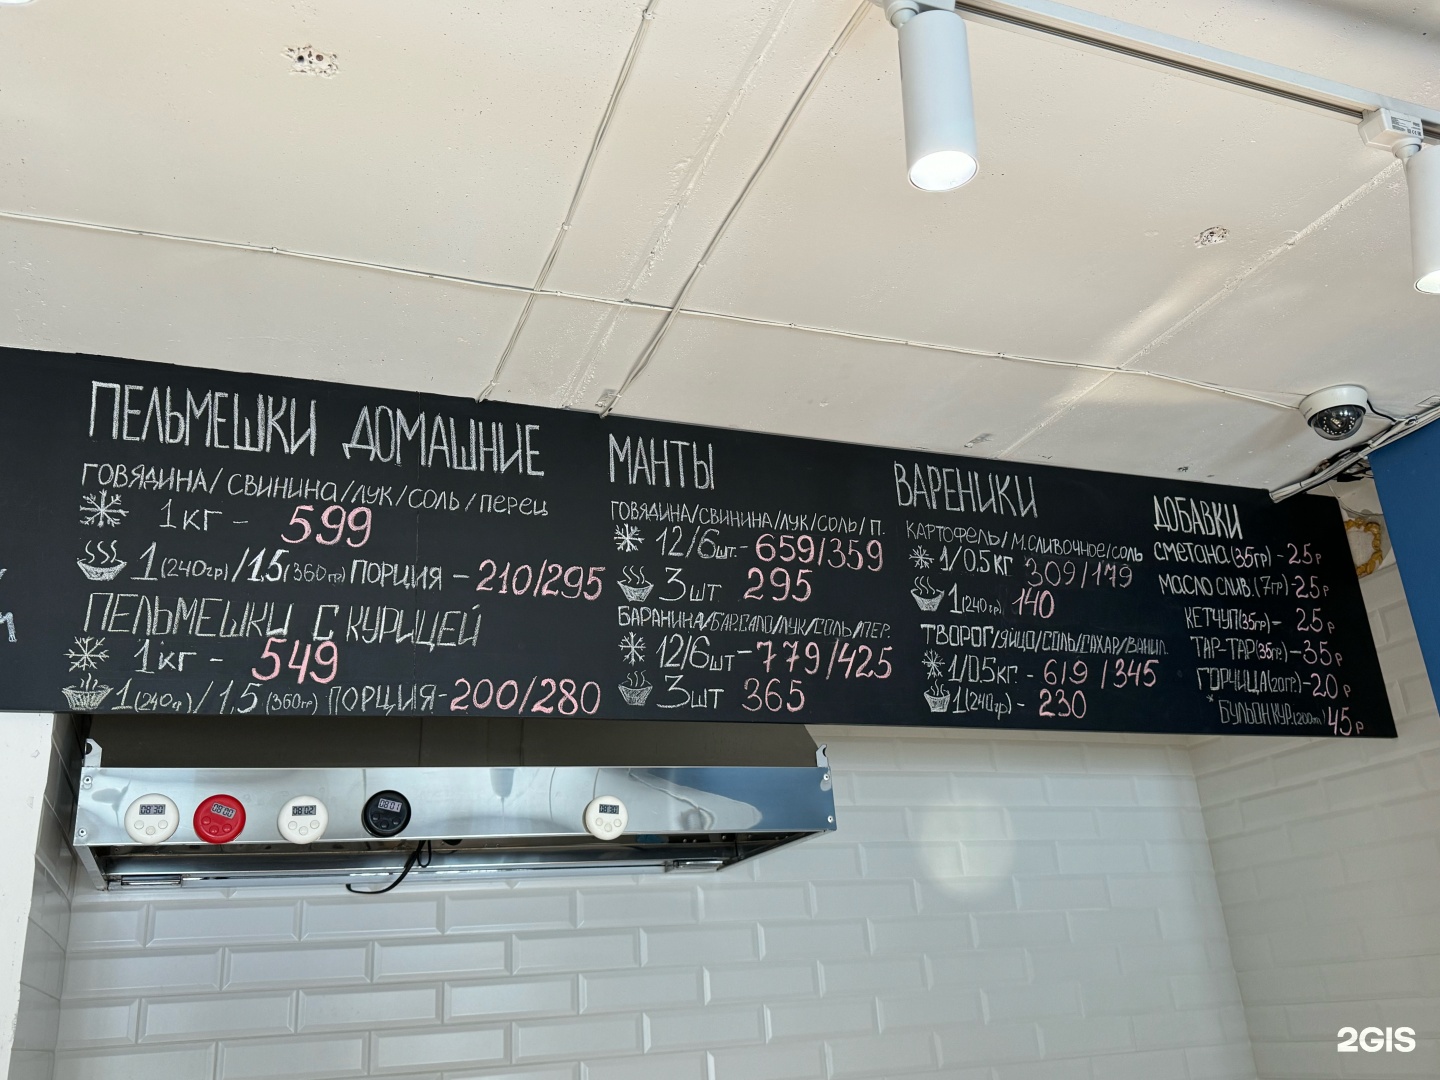 ПЕЛЬМЕШКИ ДОМАШНИЕ
ГОВЯДИНА/ СВИНИНА/ЛУК/СОЛЬ/ПЕРЕЦ
1 КГ - 599
1(240гр)/1,5(360гр) ПОРЦИЯ - 210/295
ПЕЛЬМЕШКИ С КУРИЦЕЙ
1 КГ - 549
1(240гр)/1,5(360гр) ПОРЦИЯ - 200/280
МАНТЫ
ГОВЯДИНА/СВИНИНА/ЛУК/СОЛЬ/П.
12/6шт. - 659/359
3 шт 295
БАРАНИНА/БАР.САЛО/ЛУК/СОЛЬ/ПЕР.
12/6шт - 779/425
3 шт 365
ВАРЕНИКИ
КАРТОФЕЛЬ/М.СЛИВОЧНОЕ/СОЛЬ
1/0.5 КГ 309/179
1(240гр) 140
ТВОРОГ/ЯЙЦО/СОЛЬ/САХАР/ВАНИЛ.
1/0.5 КГ. - 619/345
1(240г) - 230
ДОБАВКИ
СМЕТАНА(35гр) - 25 Р
МАСЛО СЛИВ.(7гр) - 25 Р
КЕТЧУП(35гр) - 25 Р
ТАР-ТАР(35гр.) - 35 Р
ГОРЧИЦА(20гр.) - 20 Р
* БУЛЬОН КУР.(200мл) 45 Р
08:30
08:00
08:02
08:01
08:30
2GIS